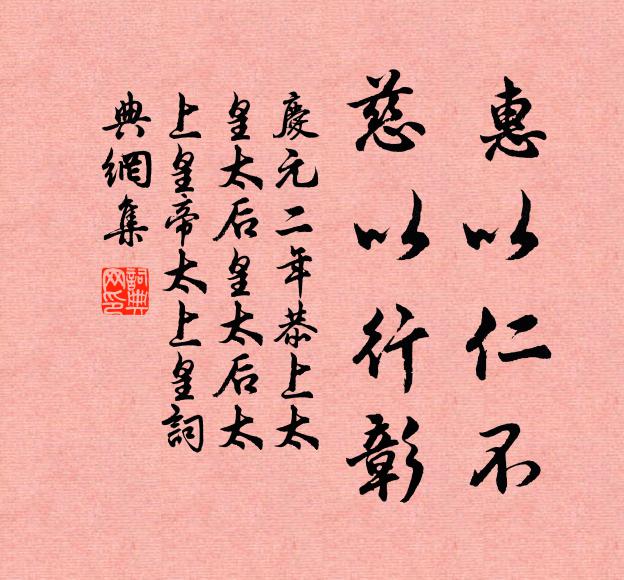 惠以仁不
慈以行彰
慶元二年恭上太
皇太后皇太后太
上皇帝太上皇詞
典網集
詞典網印